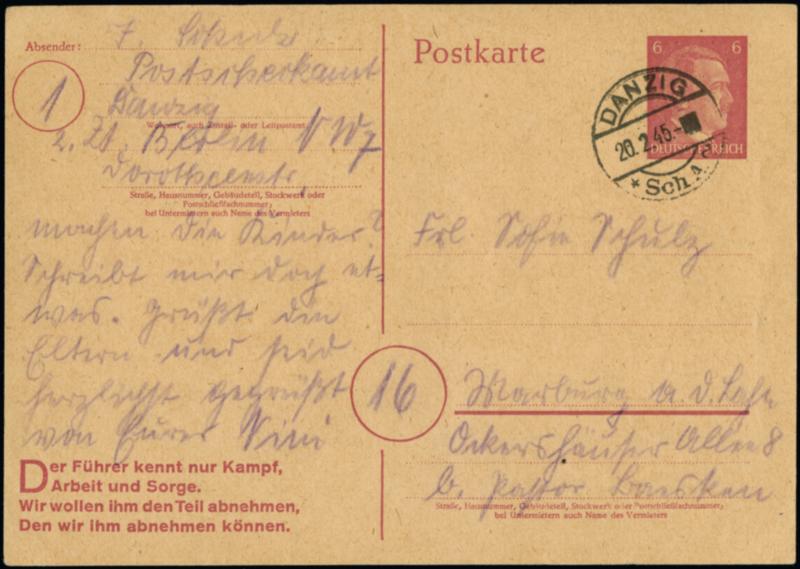 Absender:
Postscheckamt
1
Danzig
Wohnort, auch Zustell- oder Leitpostamt
z. Zt. Berlin NW7
Dorotheenstr.
Straße, Hausnummer, Gebäudeteil, Stockwerk oder
Postschließfachnummer;
bei Untermietern auch Name des Vermieters
machen die Kinder?
Schreibt mir doch et=
was. Grüßt die
Eltern und seid
herzlichst gegrüßt
von Eurer
Der Führer kennt nur Kampf,
Arbeit und Sorge.
Wir wollen ihm den Teil abnehmen,
Den wir ihm abnehmen können.
Postkarte
6 6
DEUTSCHES REICH
DANZIG
20.2.45.-
* Sch A
Frl. Sofie Schulz
16
Marburg a. d. Lahn
Ockershäuser Allee 8
b. Pastor
Straße, Hausnummer, Gebäudeteil, Stockwerk oder Postschließfachnummer;
bei Untermietern auch Name des Vermieters